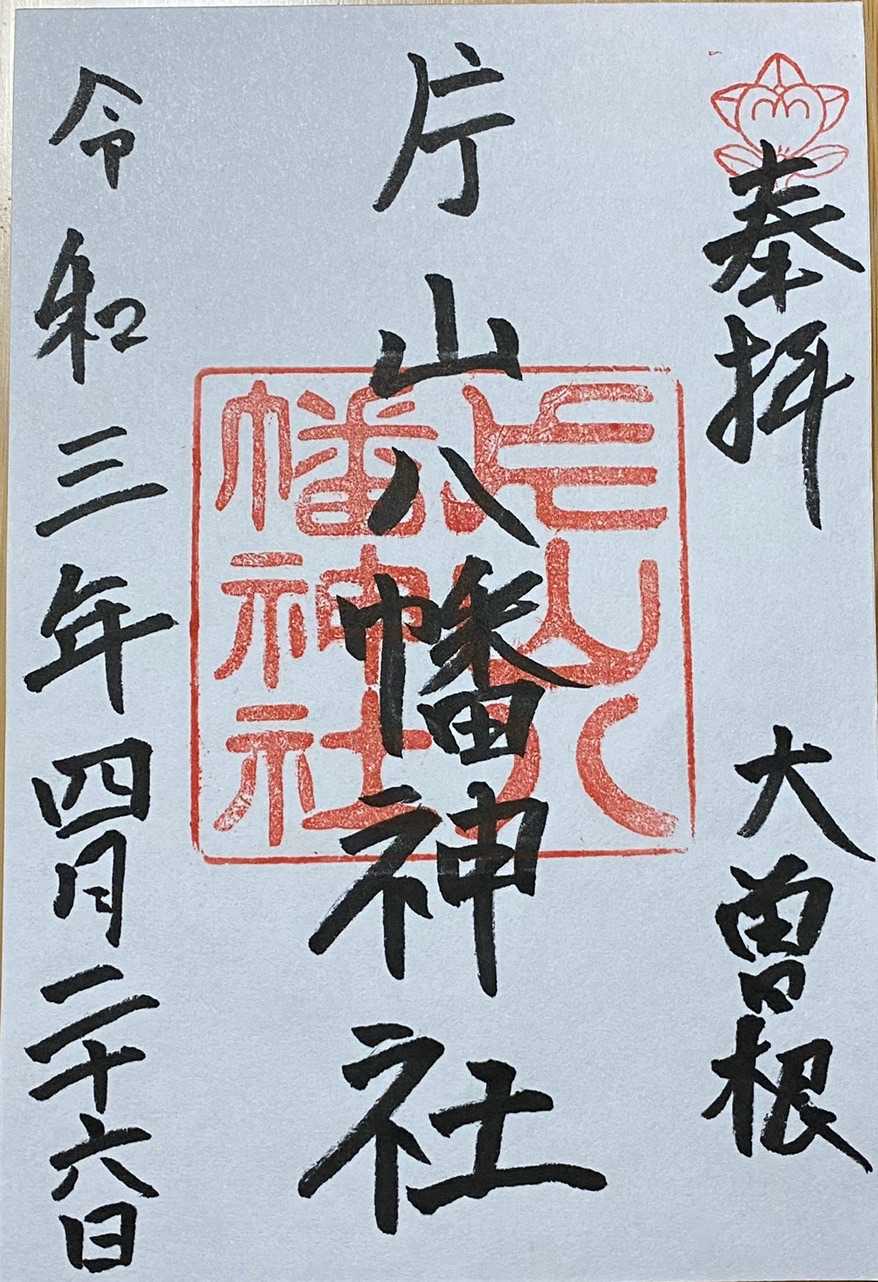 奉拝 大曽根
片山八幡神社
令和三年四月二十六日
片山八
幡神社